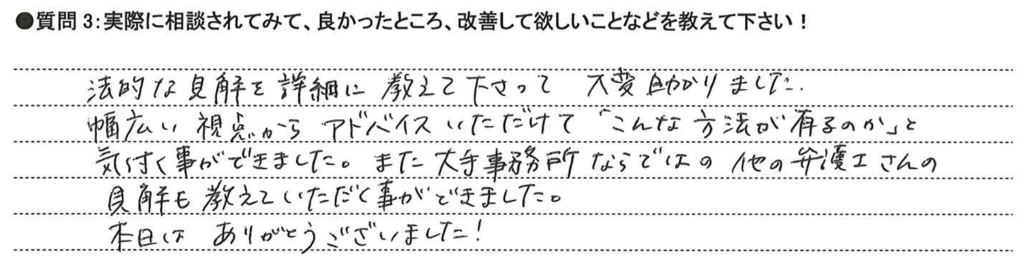 ●質問3:実際に相談されてみて、良かったところ、改善して欲しいことなどを教えて下さい！
法的な見解を詳細に教えて下さって 大変助かりました.
幅広い視点から アドバイスいただけて「こんな方法が有るのか」と
気付く事ができました。また大手事務所ならではの他の弁護士さんの
見解も教えていただく事ができました。
本日は ありがとうございました！